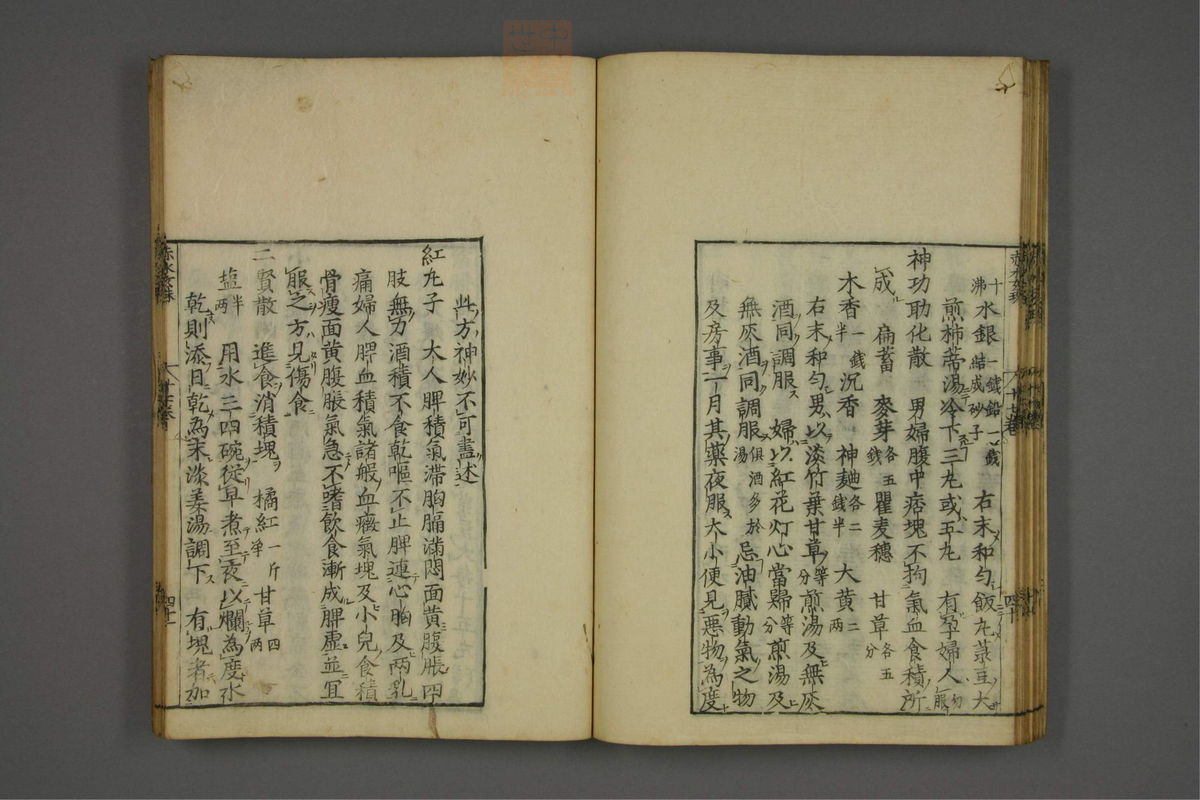 赤水玄珠 十七卷 四十
水銀 一錢 鉛 一錢 結成砂子 右末和勻飯丸菉豆大
煎柿蒂湯冷下三丸或五丸 有孕婦人 勿服
神功助化散 男婦腹中痞塊不拘氣血食積所
成 扁蓄 麥芽 各五錢 瞿麦穗 甘草 各五分
木香 一錢半 沉香 神麯 各二錢半 大黄 二兩
右末和勻男以淡竹葉甘草 等分 煎湯及無灰
酒同調服 婦以紅花灯心當歸 等分 煎湯及
無灰酒同調服 俱酒多於湯 忌油膩動氣之物
及房事一月其藥夜服大小便見悪物為度
此方神妙不可盡述
紅丸子 大人脾積氣滯胸膈滿悶面黄腹脹四
肢無力酒積不食乾嘔不止脾連心胸及两乳
痛婦人脾血積氣諸般血癥氣塊及小兒食積
骨瘦面黄腹脹氣急不嗜飲食漸成脾虛並宜
服之方見傷食
二賢散 進食消積塊 橘紅 一斤淨 甘草 四兩
塩 半两 用水三四碗從早煮至夜以爛為度水
乾則添日乾為末淡姜湯調下 有塊者加
赤水玄珠 十七卷